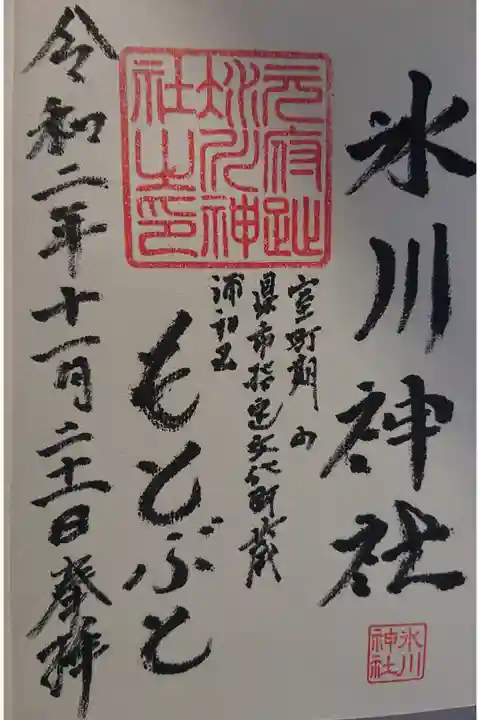 氷川神社
室町期の
県市指定文化財蔵
浦和玉
元府趾
氷川神
社之印
もとぶと
令和二年十一月二十二日奉拝
氷川
神社